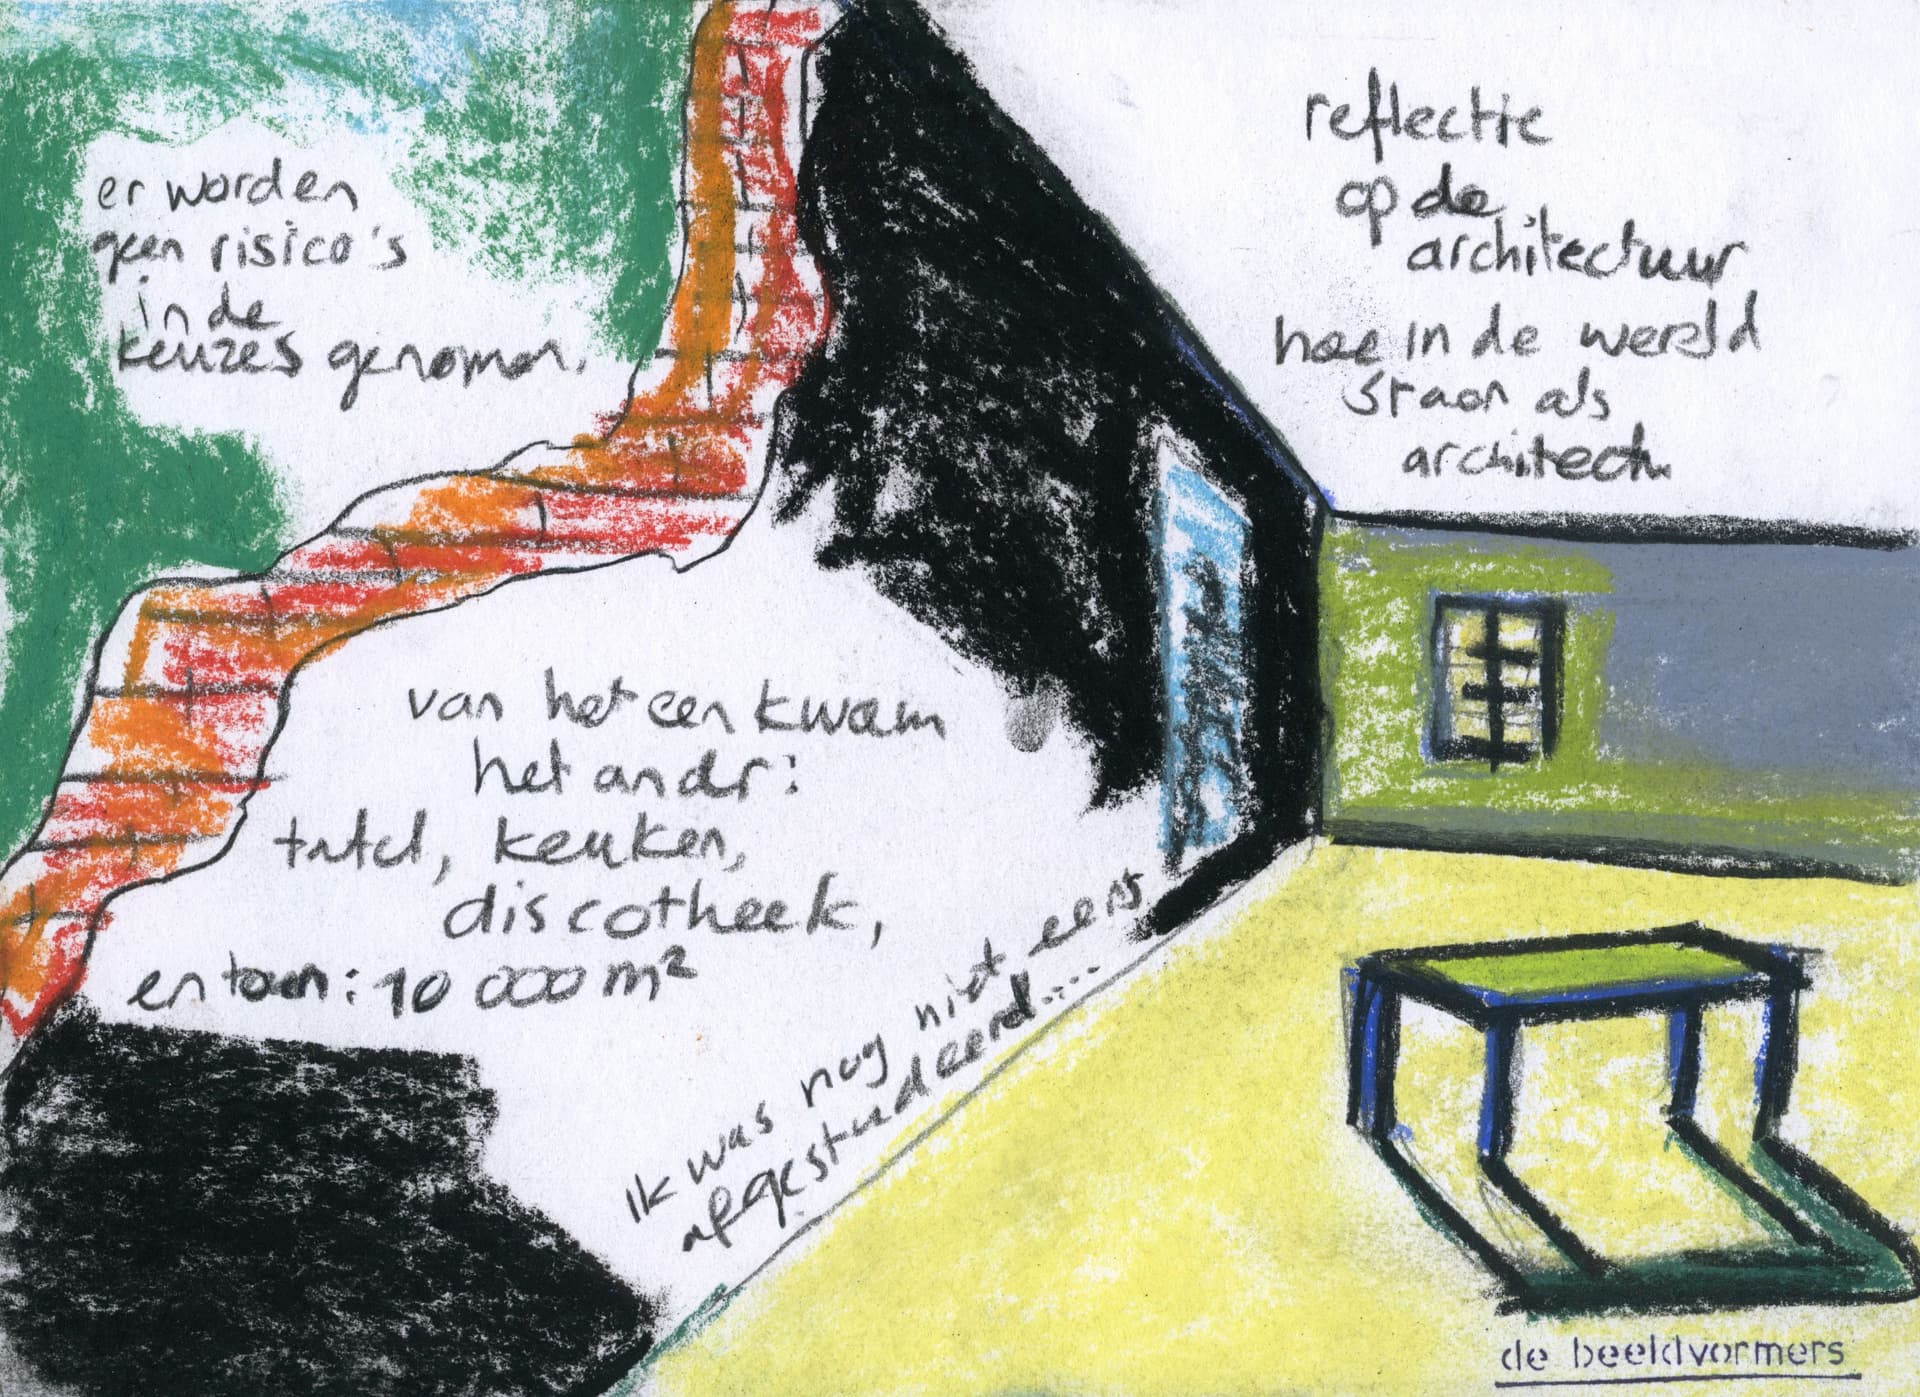 er worden
geen risico's
in de
keuzes genomen.
reflectie
op de
architectuur
hoe in de wereld
staan als
architect
van het een kwam
het andr:
tafel, keuken,
discotheek,
en toen: 10 000 m²
Ik was nog niet eens
afgestudeerd...
de beeldvormers